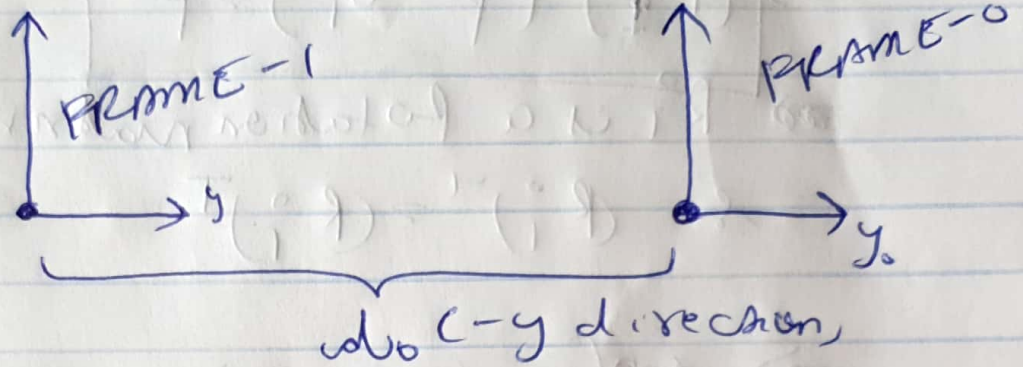 FRAME-1
FRAME-0
y
y₀
do (-y direction)